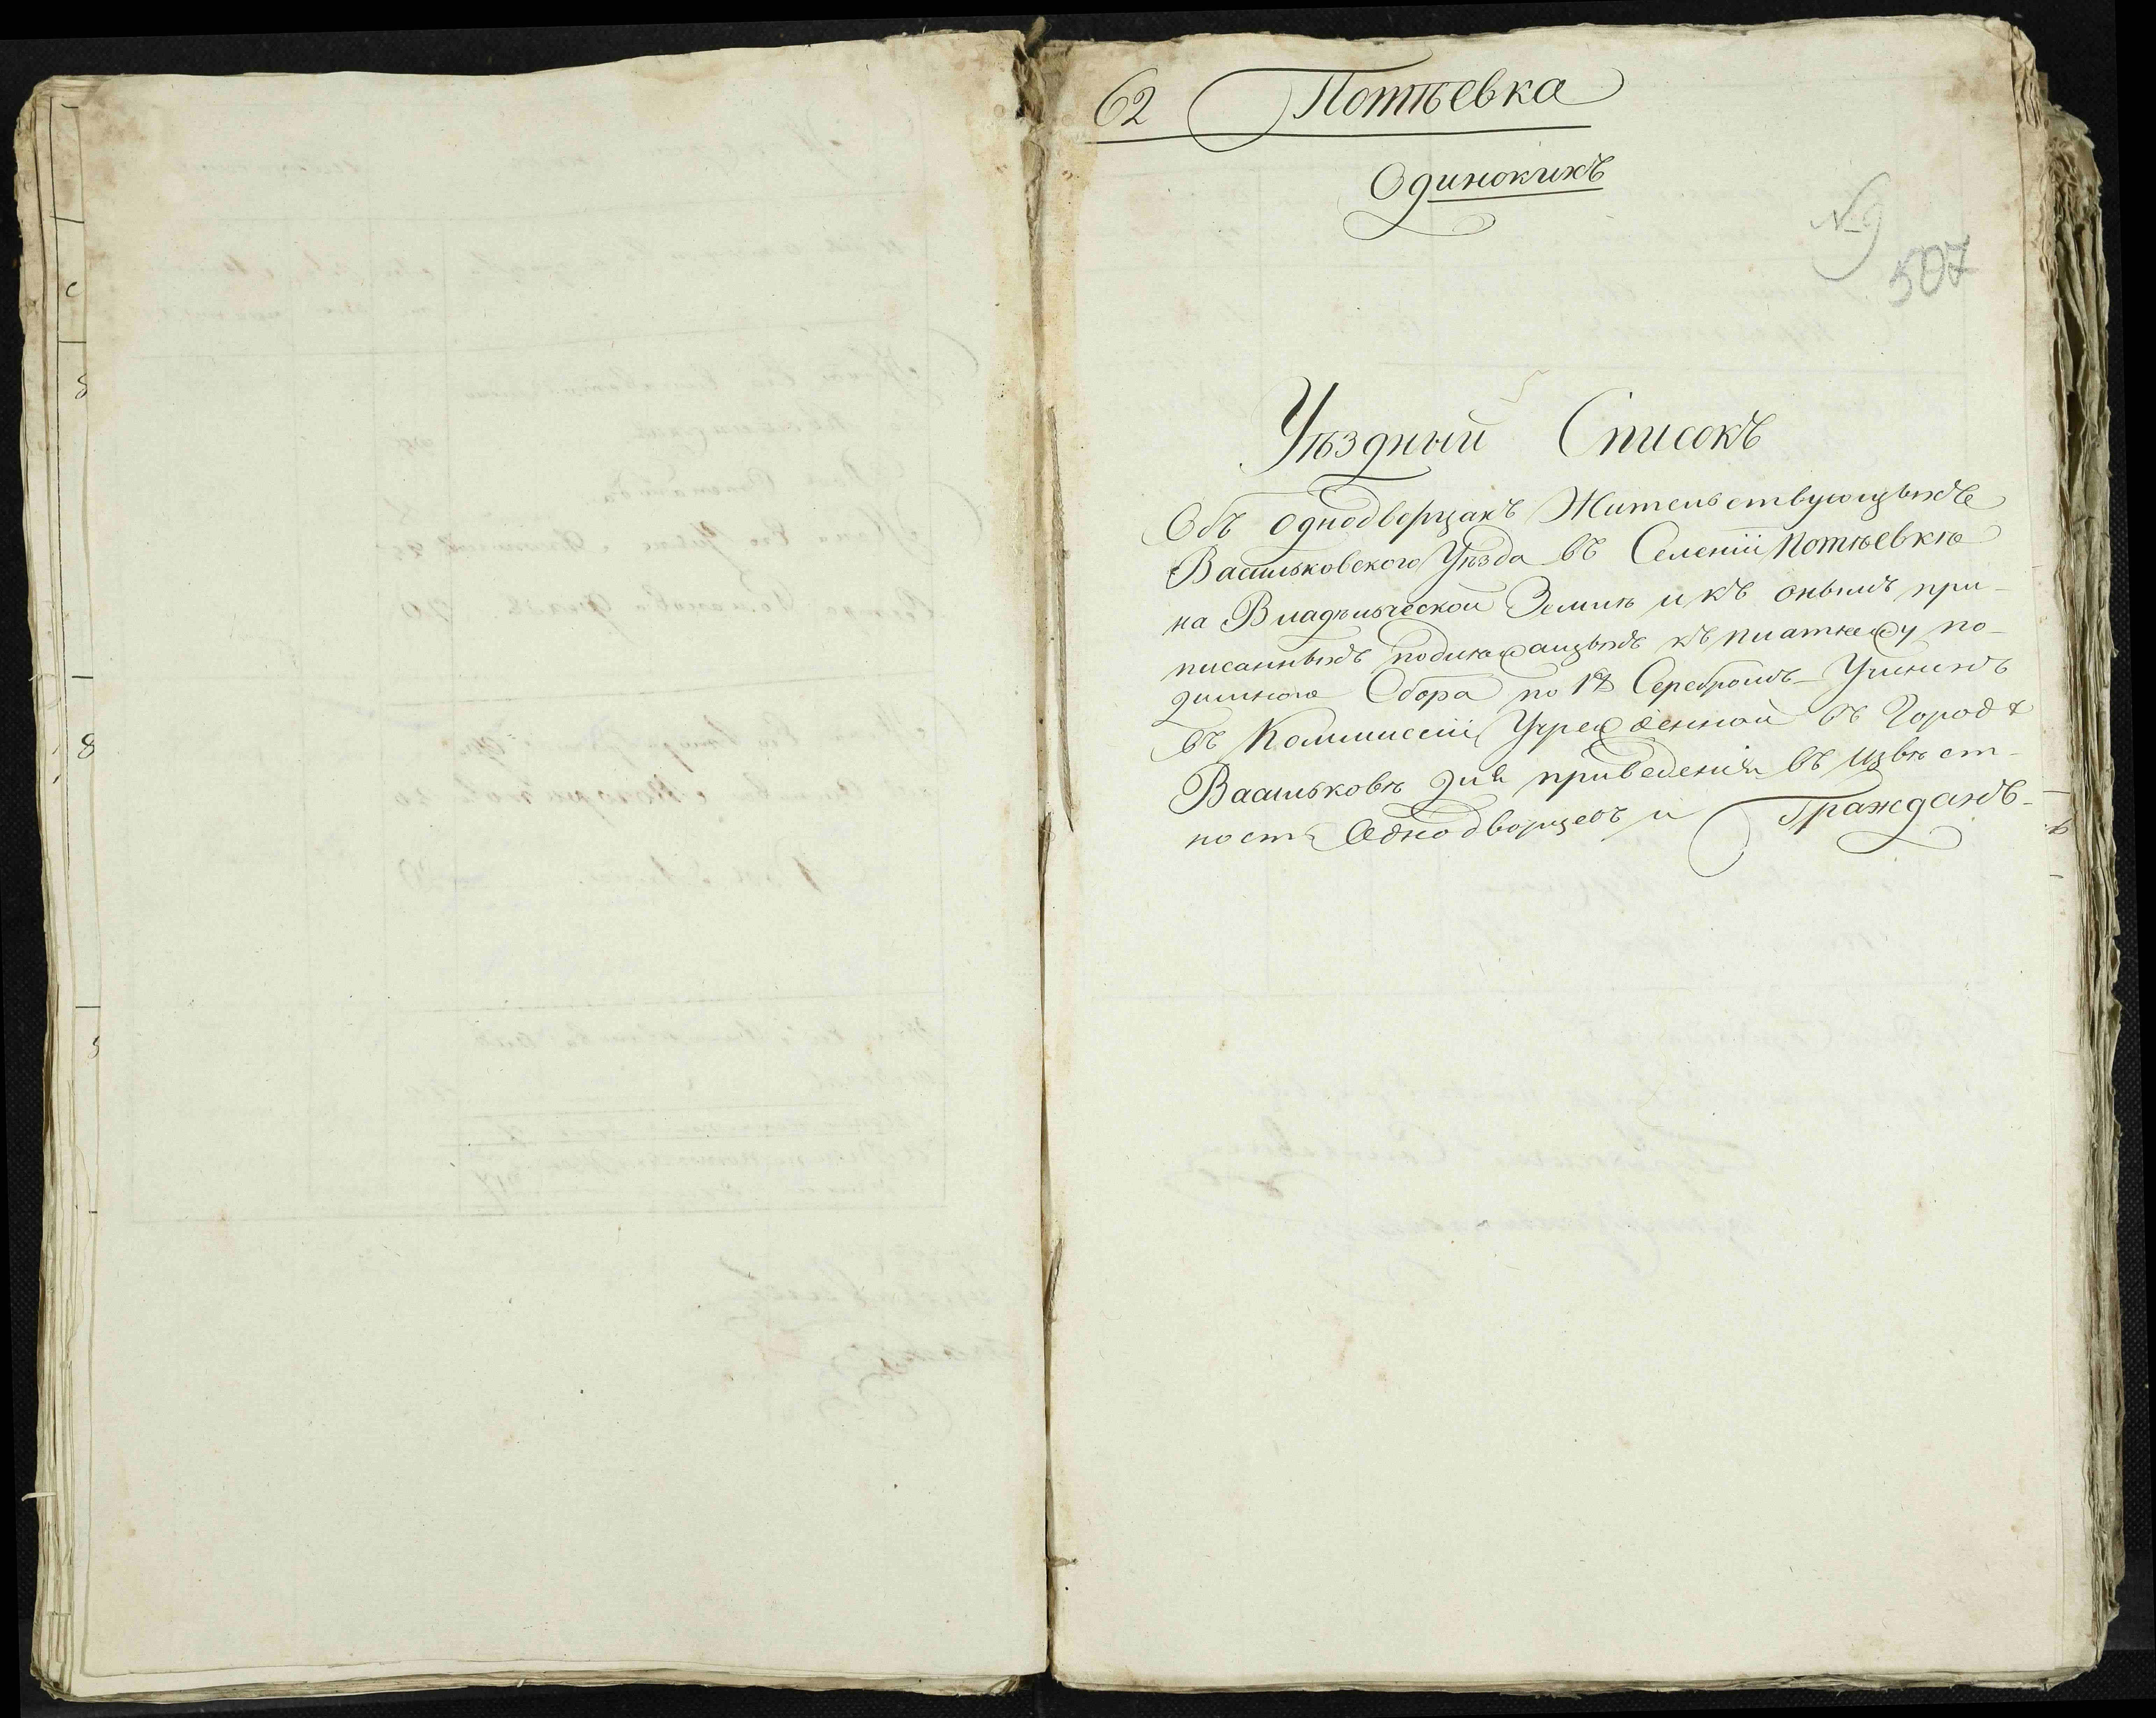 62 Потѣевка
Одинокихъ
№ 9
507
Уѣздный Списокъ
Объ Однодворцахъ Жительствующыхъ
Васильковского Уѣзда въ Селеніи Потѣевкѣ
на Владѣльческой Землѣ и къ онымъ при-
писанныхъ подлежащыхъ къ платежу по-
дымного Сбора по 1 Серебромъ Учининъ
въ Коммиссіи Учрежденной въ Городѣ
Васильковѣ для приведенія въ извѣст-
ность Однодворцевъ и Гражданъ-